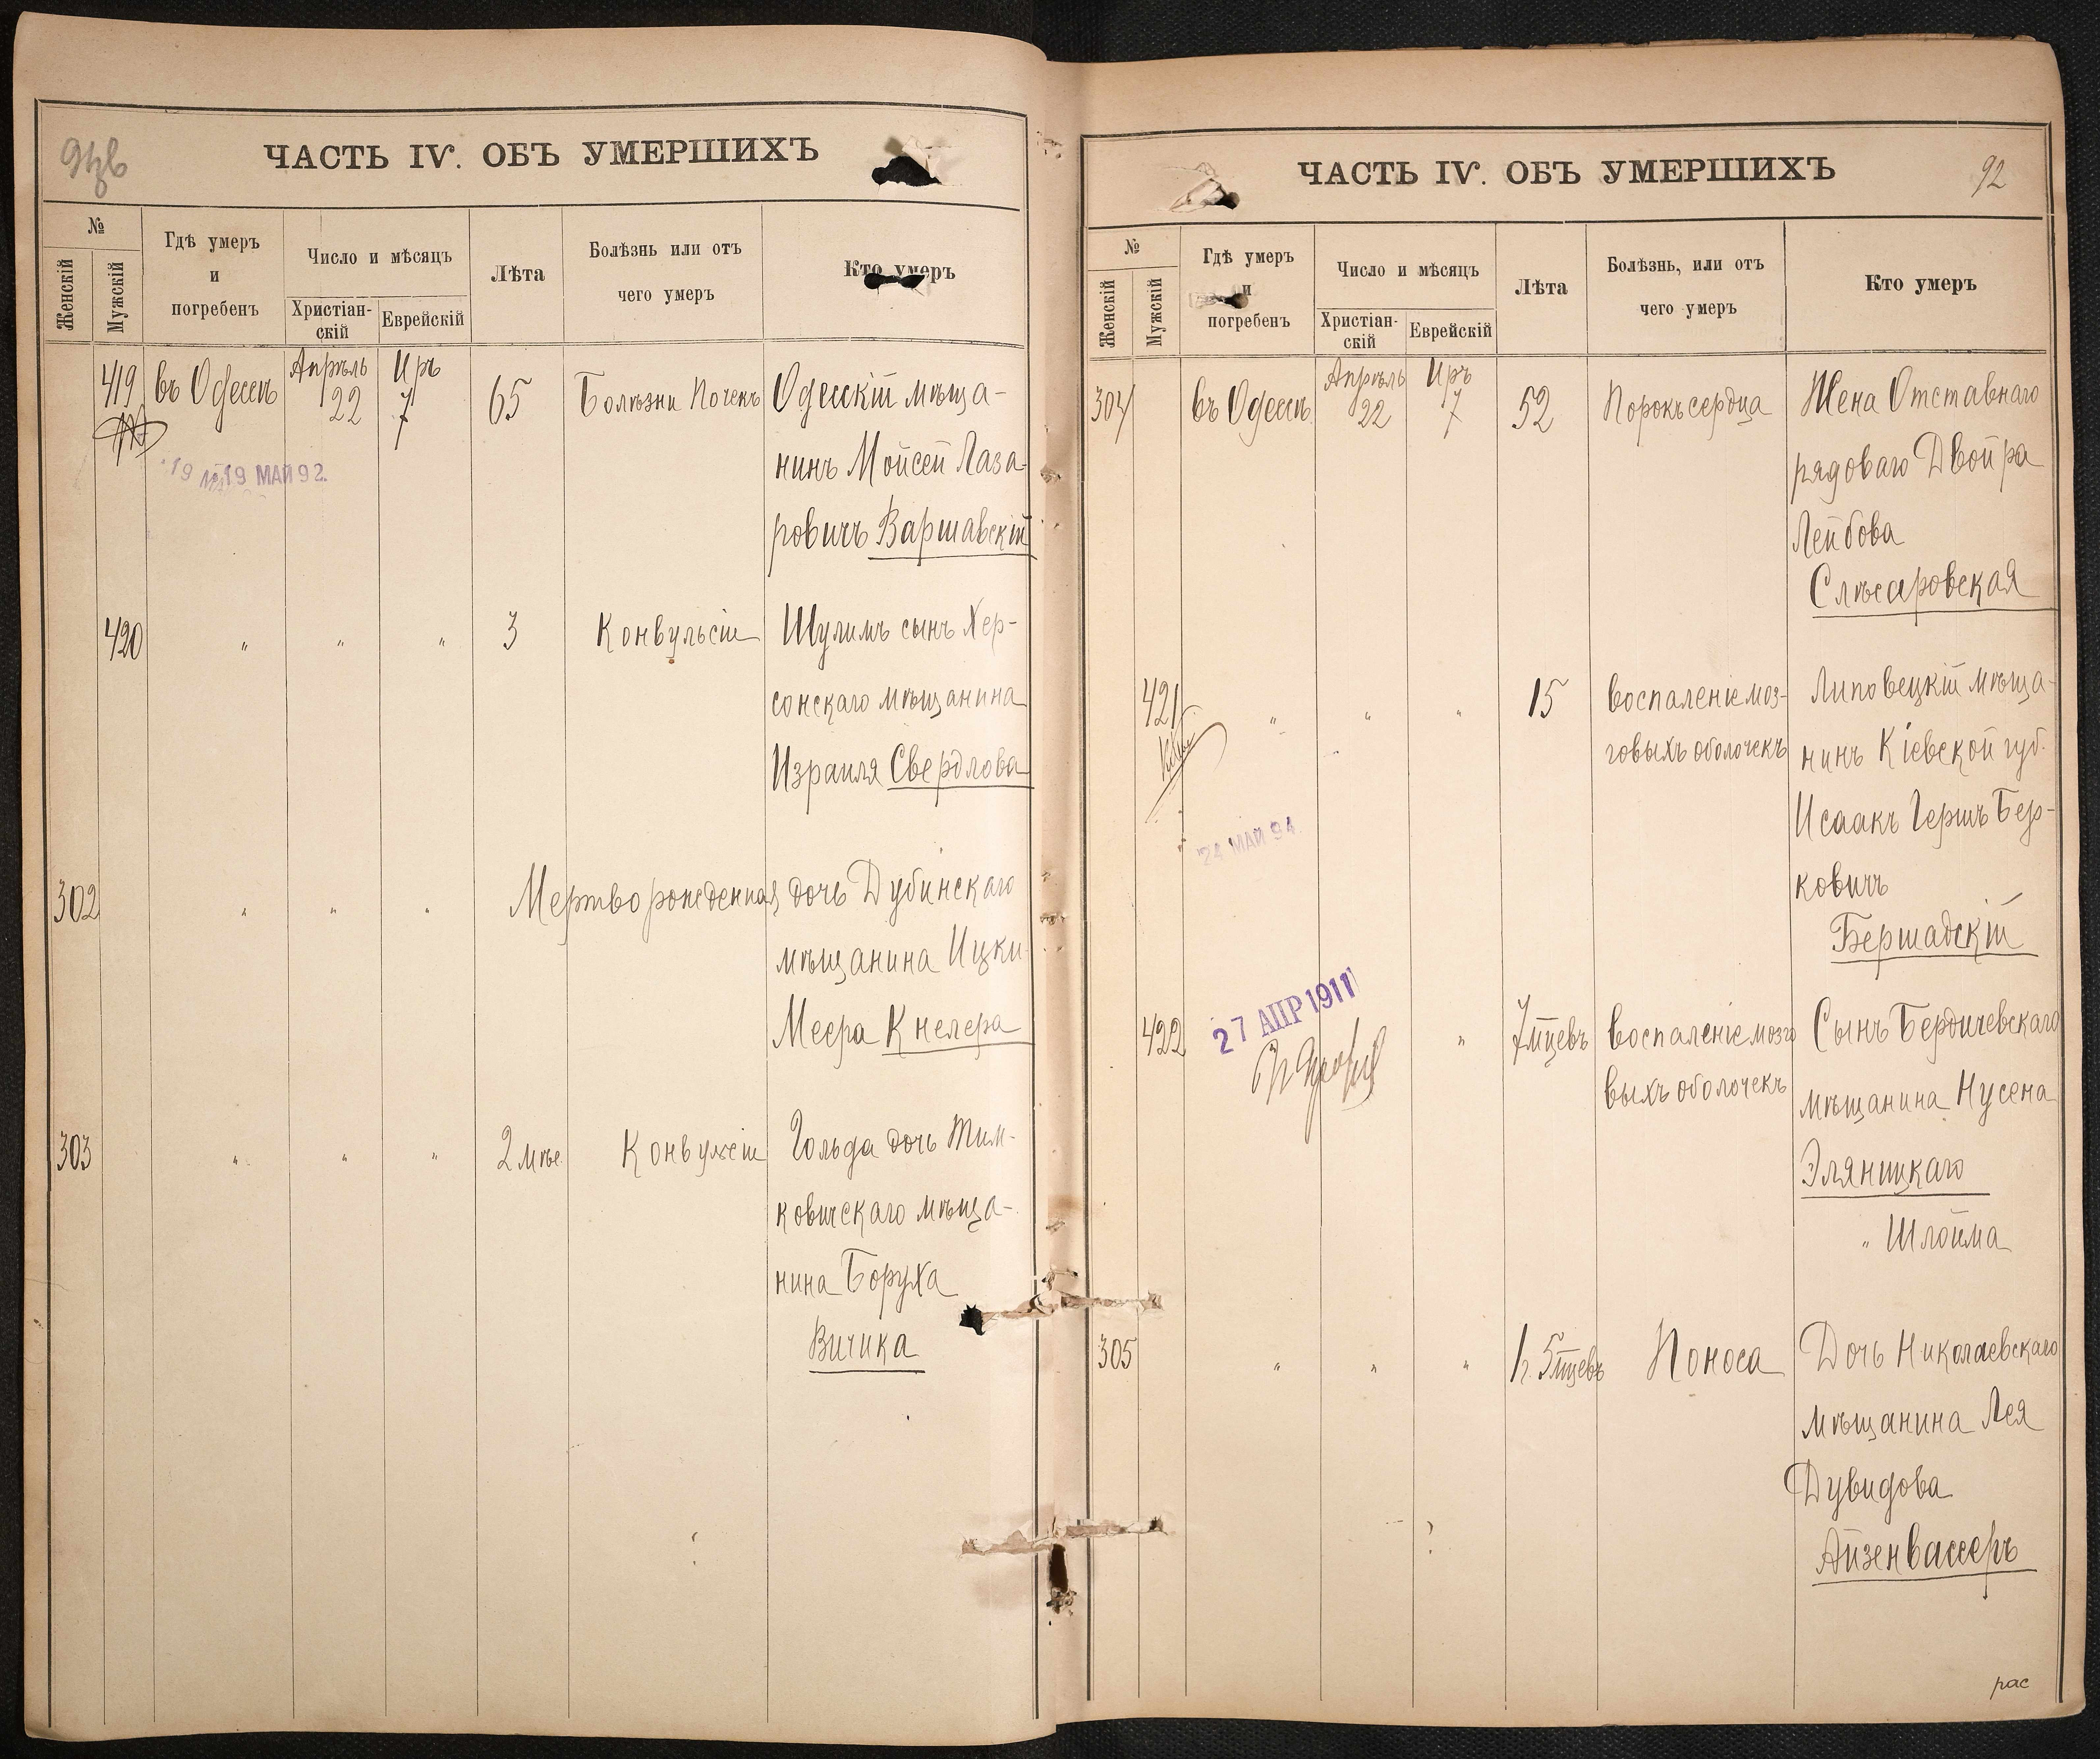 ЧАСТЬ IV. ОБЪ УМЕРШИХЪ
№
Женскій
Мужскій
Гдѣ умеръ
и
погребенъ
Число и мѣсяцъ
Христіан-
скій
Еврейскій
Лѣта
Болѣзнь или отъ
чего умеръ
Кто умеръ
419 въ Одессѣ Апрѣль 22 Иръ 7 65 Болѣзни Почекъ Одесскій мѣща-
нинъ Мойсей Лаза-
ровичъ Варшавскій
19 МАЙ 92.
420 " " " 3 Конвульсіи Шулимъ сынъ Хер-
сонскаго мѣщанина
Израиля Свердлова
302 " " " Мертворожденная дочь Дубинскаго
мѣщанина Ицки
Меера Кнелера
303 " " " 2 мѣс. Конвульсіи Гольда дочь Тим-
ковичскаго мѣща-
нина Боруха
Вичика
ЧАСТЬ IV. ОБЪ УМЕРШИХЪ
92
№
Женскій
Мужскій
Гдѣ умеръ
и
погребенъ
Число и мѣсяцъ
Христіан-
скій
Еврейскій
Лѣта
Болѣзнь, или отъ
чего умеръ
Кто умеръ
304 въ Одессѣ Апрѣль 22 Иръ 7 52 Порокъ сердца Жена Отставнаго
рядоваго Двойра
Лейбова
Слѣсаровская
421 " " " 15 воспаленіе моз- Липовецкій мѣща-
говыхъ оболочекъ нинъ Кіевской губ.
Исаакъ Гершъ Бер-
ковичъ
Бершадскій
24 МАЙ 94.
27 АПР 1911
422 " 7 мцевъ воспаленіе мозго Сынъ Бердичевскаго
выхъ оболочекъ мѣщанина Нусена
Эляницкаго
" Шлойма
305 " " " 1 г. 5 мцевъ Поноса Дочь Николаевскаго
мѣщанина Лея
Дувидова
Айзенвассеръ
рас